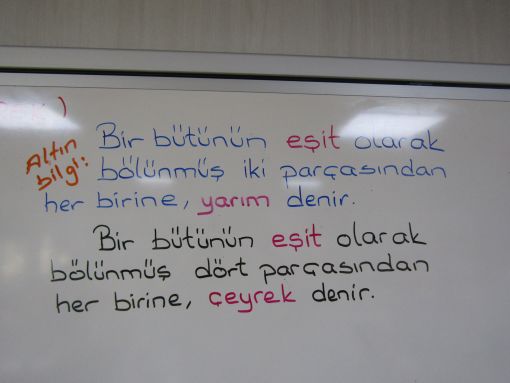 Altın bilgi:
Bir bütünün eşit olarak
bölünmüş iki parçasından
her birine, yarım denir.
Bir bütünün eşit olarak
bölünmüş dört parçasından
her birine, çeyrek denir.